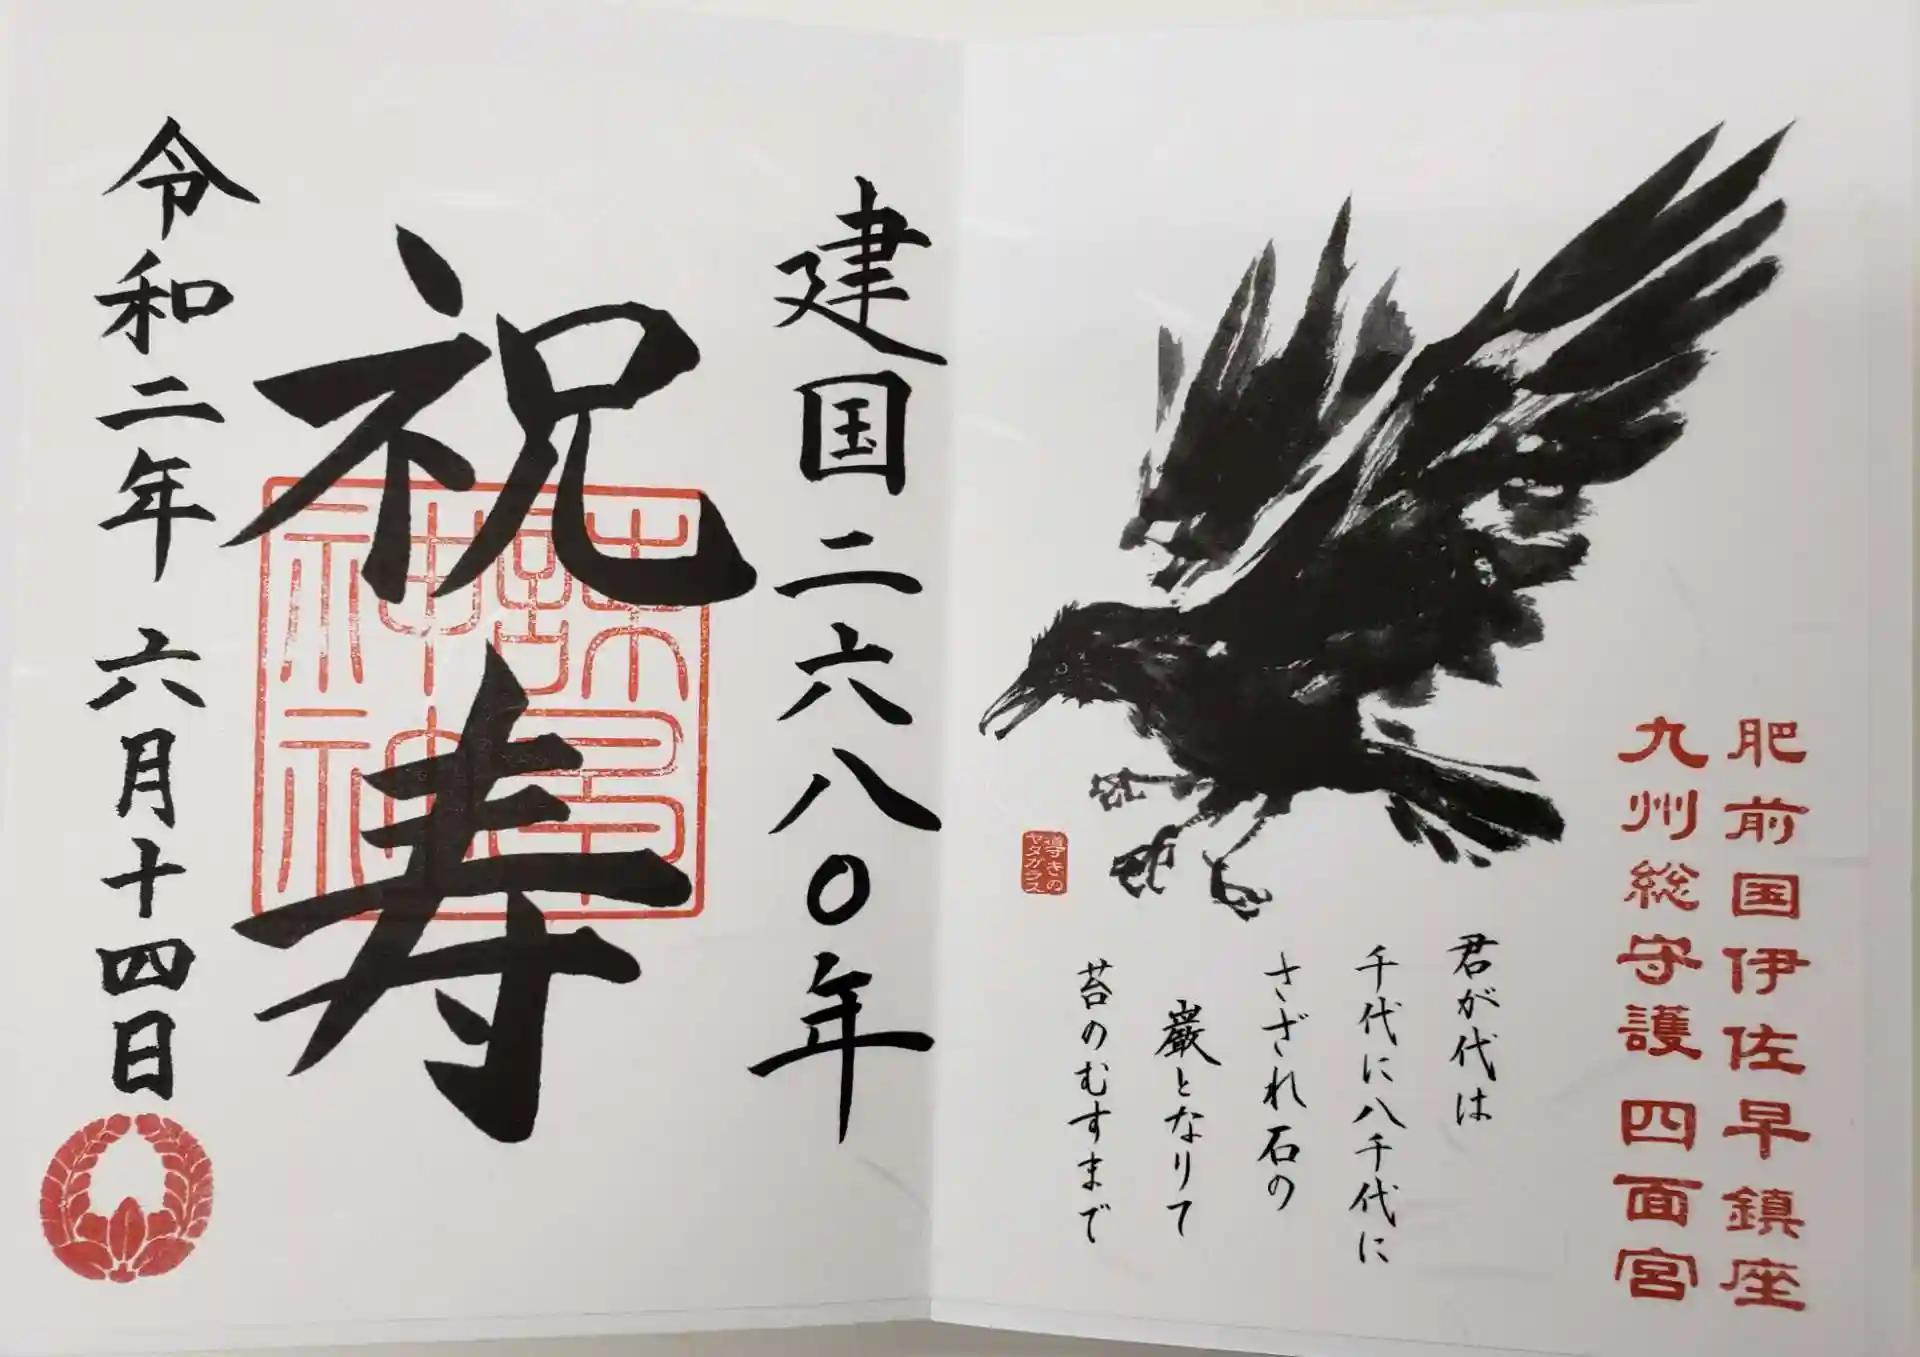 肥前国伊佐早鎮座
九州総守護 四面宮
君が代は
千代に八千代に
さざれ石の
巌となりて
苔のむすまで
導きの
ヤタガラス
建国二六八〇年
祝寿
令和二年 六月十四日